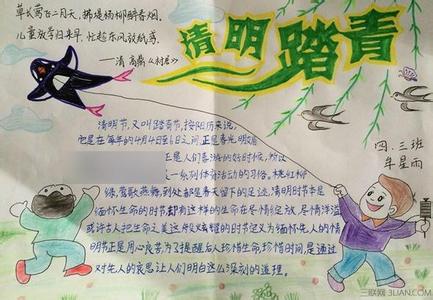 草长莺飞二月天，拂堤杨柳醉春烟。
儿童散学归来早，忙趁东风放纸鸢。
——清 高鼎《村居》
清明踏青
四.三班
牟星雨
清明节，又叫踏青节，按阳历来说，
它是在每年的4月4日至6日之间，正是春光明媚
正是人们春游的好时候，所以
一系列体育活动的习俗。桃红柳
绿，莺歌燕舞，到处都是春天留下的足迹，清明时节是
缅怀生命的时节，却有这样的生命在尽情绽放，尽情洋溢
或许古人把生命之美这般炫耀的时节定义为缅怀先人的清
明节正是用心良苦，为了提醒后人珍惜生命，珍惜时间，是通过
对先人的哀思让人们明白这么深刻的道理。
三联网 3LIAN.COM